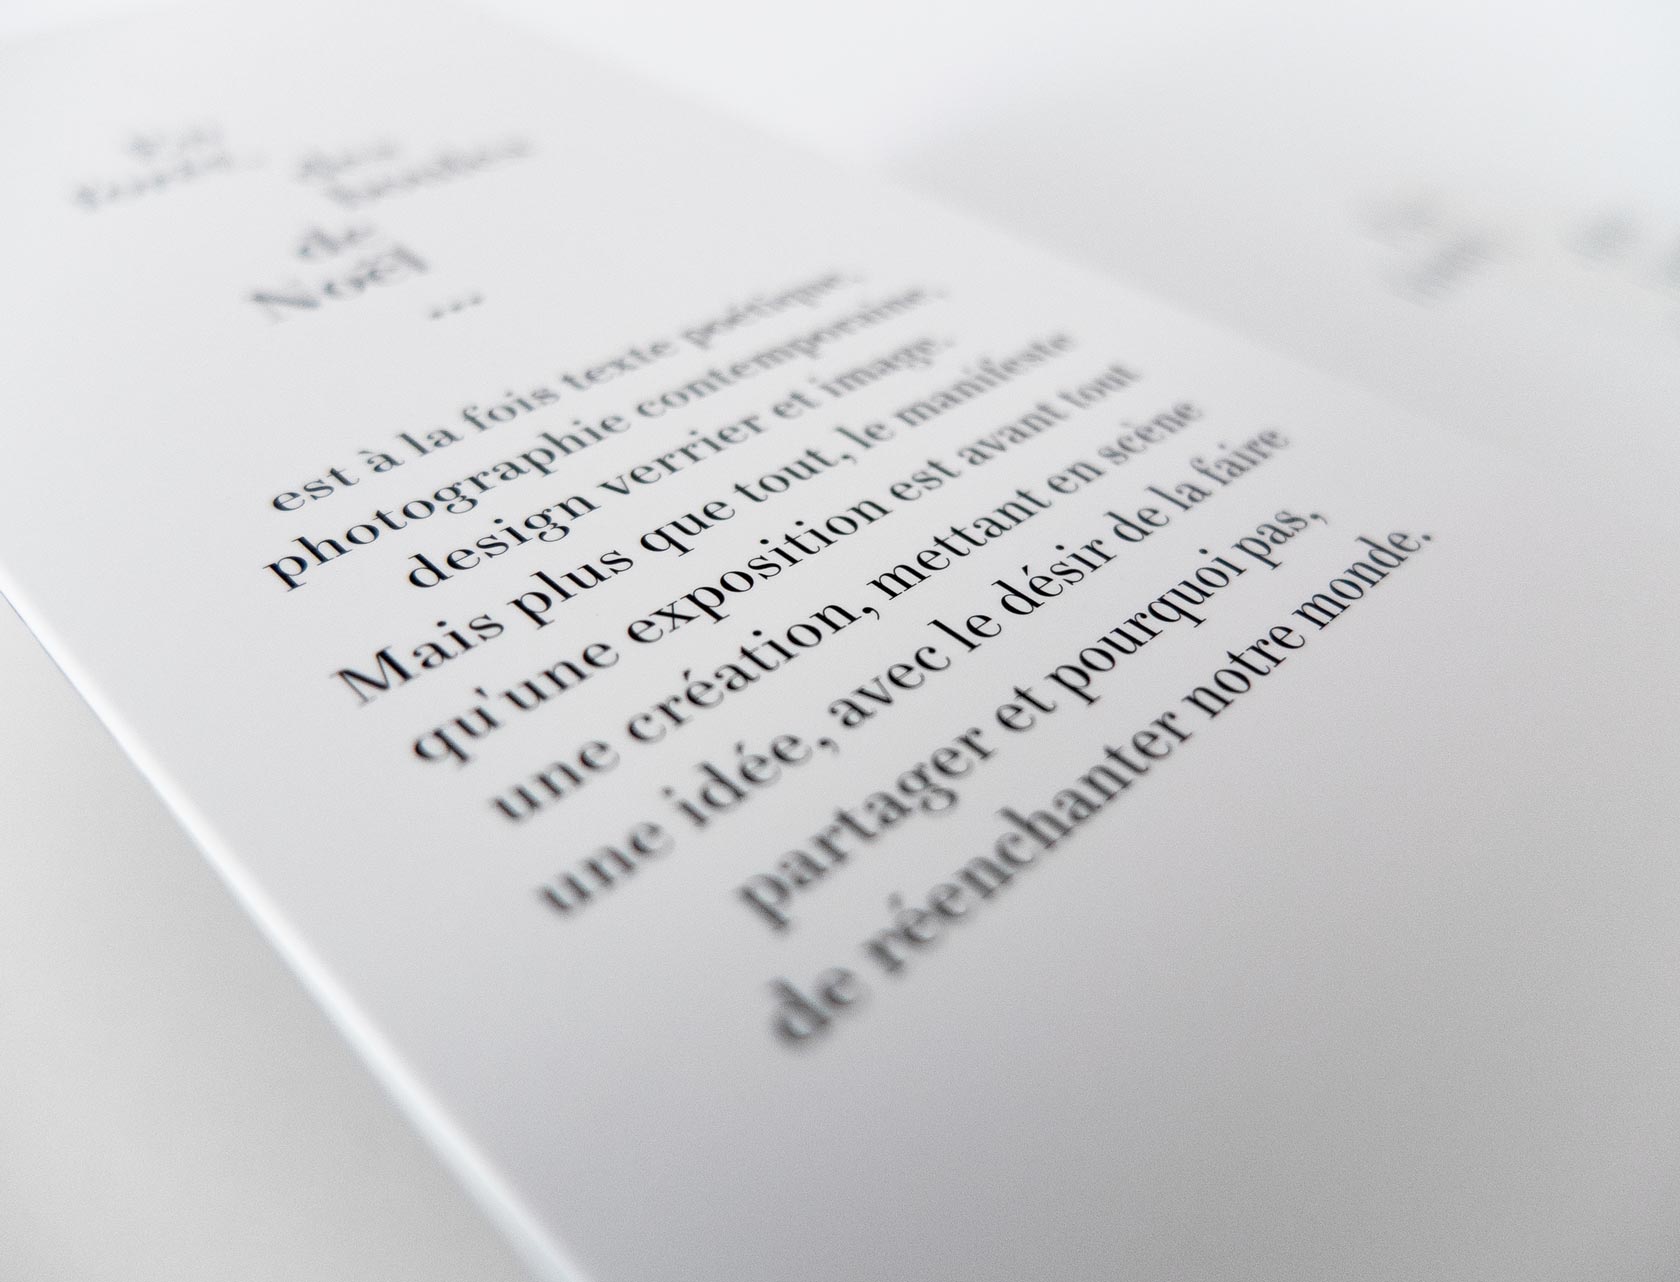 des
de
Noël
...
est à la fois texte poétique,
photographie contemporaine,
design verrier et image.
Mais plus que tout, le manifeste
qu'une exposition est avant tout
une création, mettant en scène
une idée, avec le désir de la faire
partager et pourquoi pas,
de réenchanter notre monde.